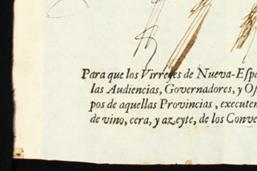 Para que los Virreyes de Nueva-Espa
las Audiencias, Governadores, y Of
pos de aquellas Provincias, executen
de vino, cera, y azeyte, de los Conve